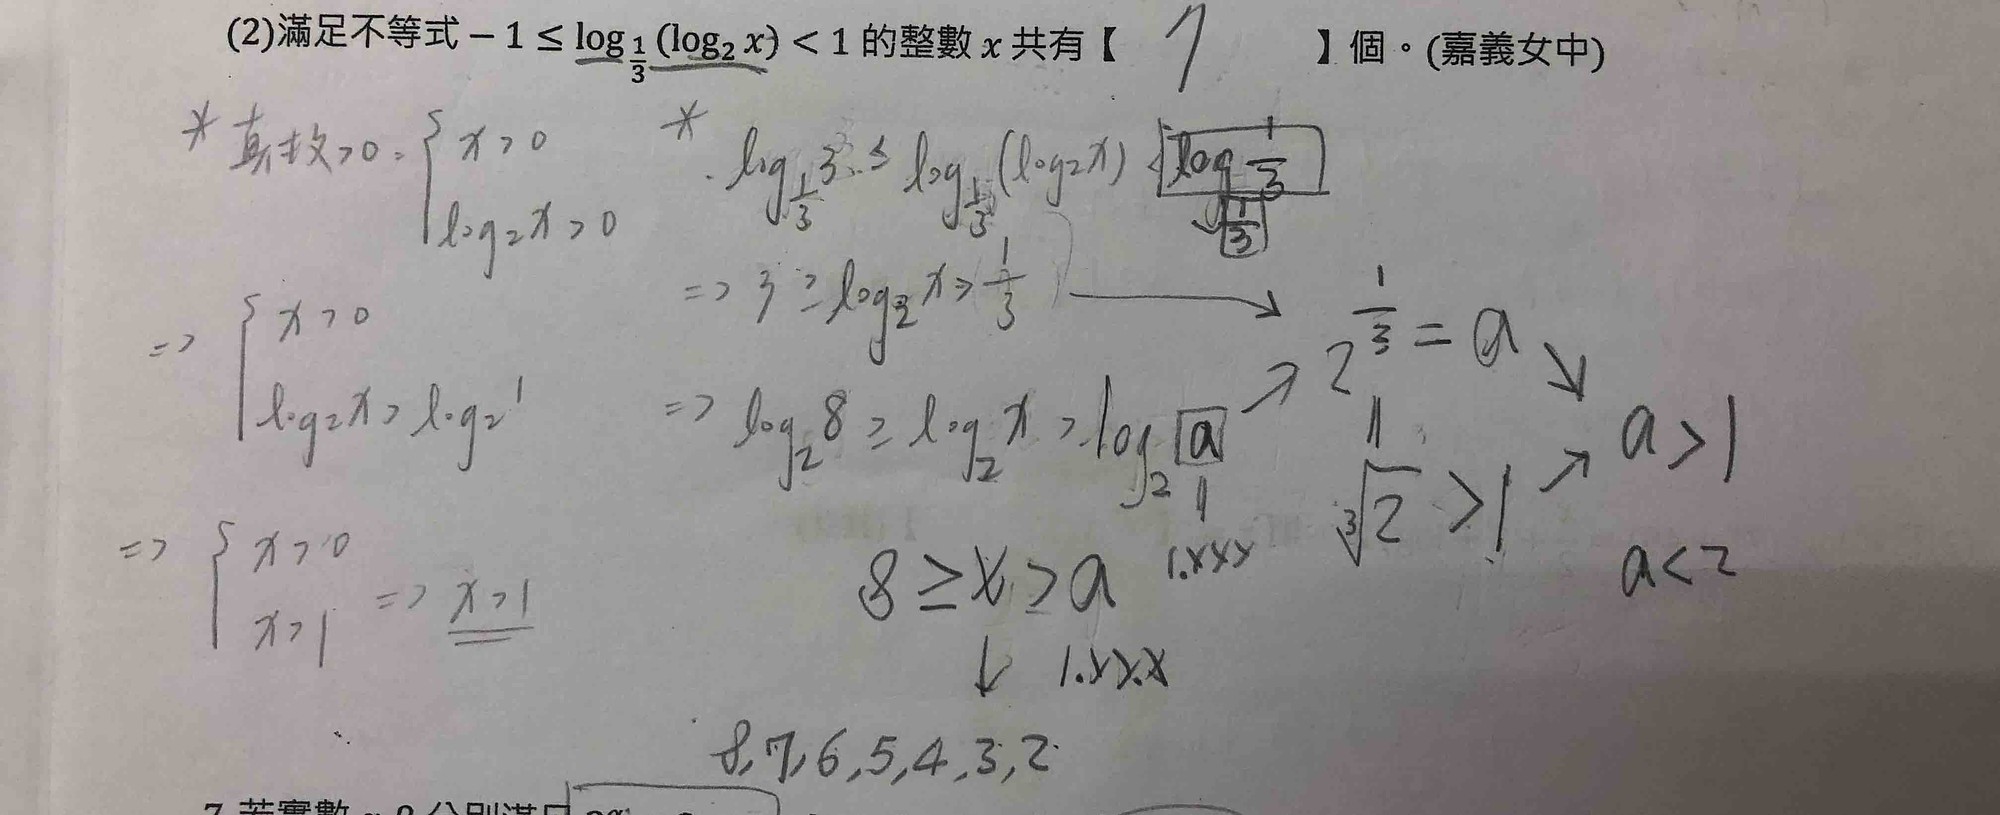 (2)滿足不等式 − 1 ≤ log_{1/3}(log₂ x) < 1 的整數 x 共有【 7 】個。(嘉義女中)
* 真数>0 = { x>0
log₂x>0
=> { x>0
log₂x > log₂1
=> { x>0
x>1 => x>1
* log_{1/3}3 ≤ log_{1/3}(log₂x) < log_{1/3} 1/3
=> 3 ≥ log₂x > 1/3
=> log₂8 ≥ log₂x > log₂a
8 ≥ x > a
1.xxx
1.xxx
8,7,6,5,4,3,2
2^{1/3} = a
∛2 > 1
a > 1
a < 2